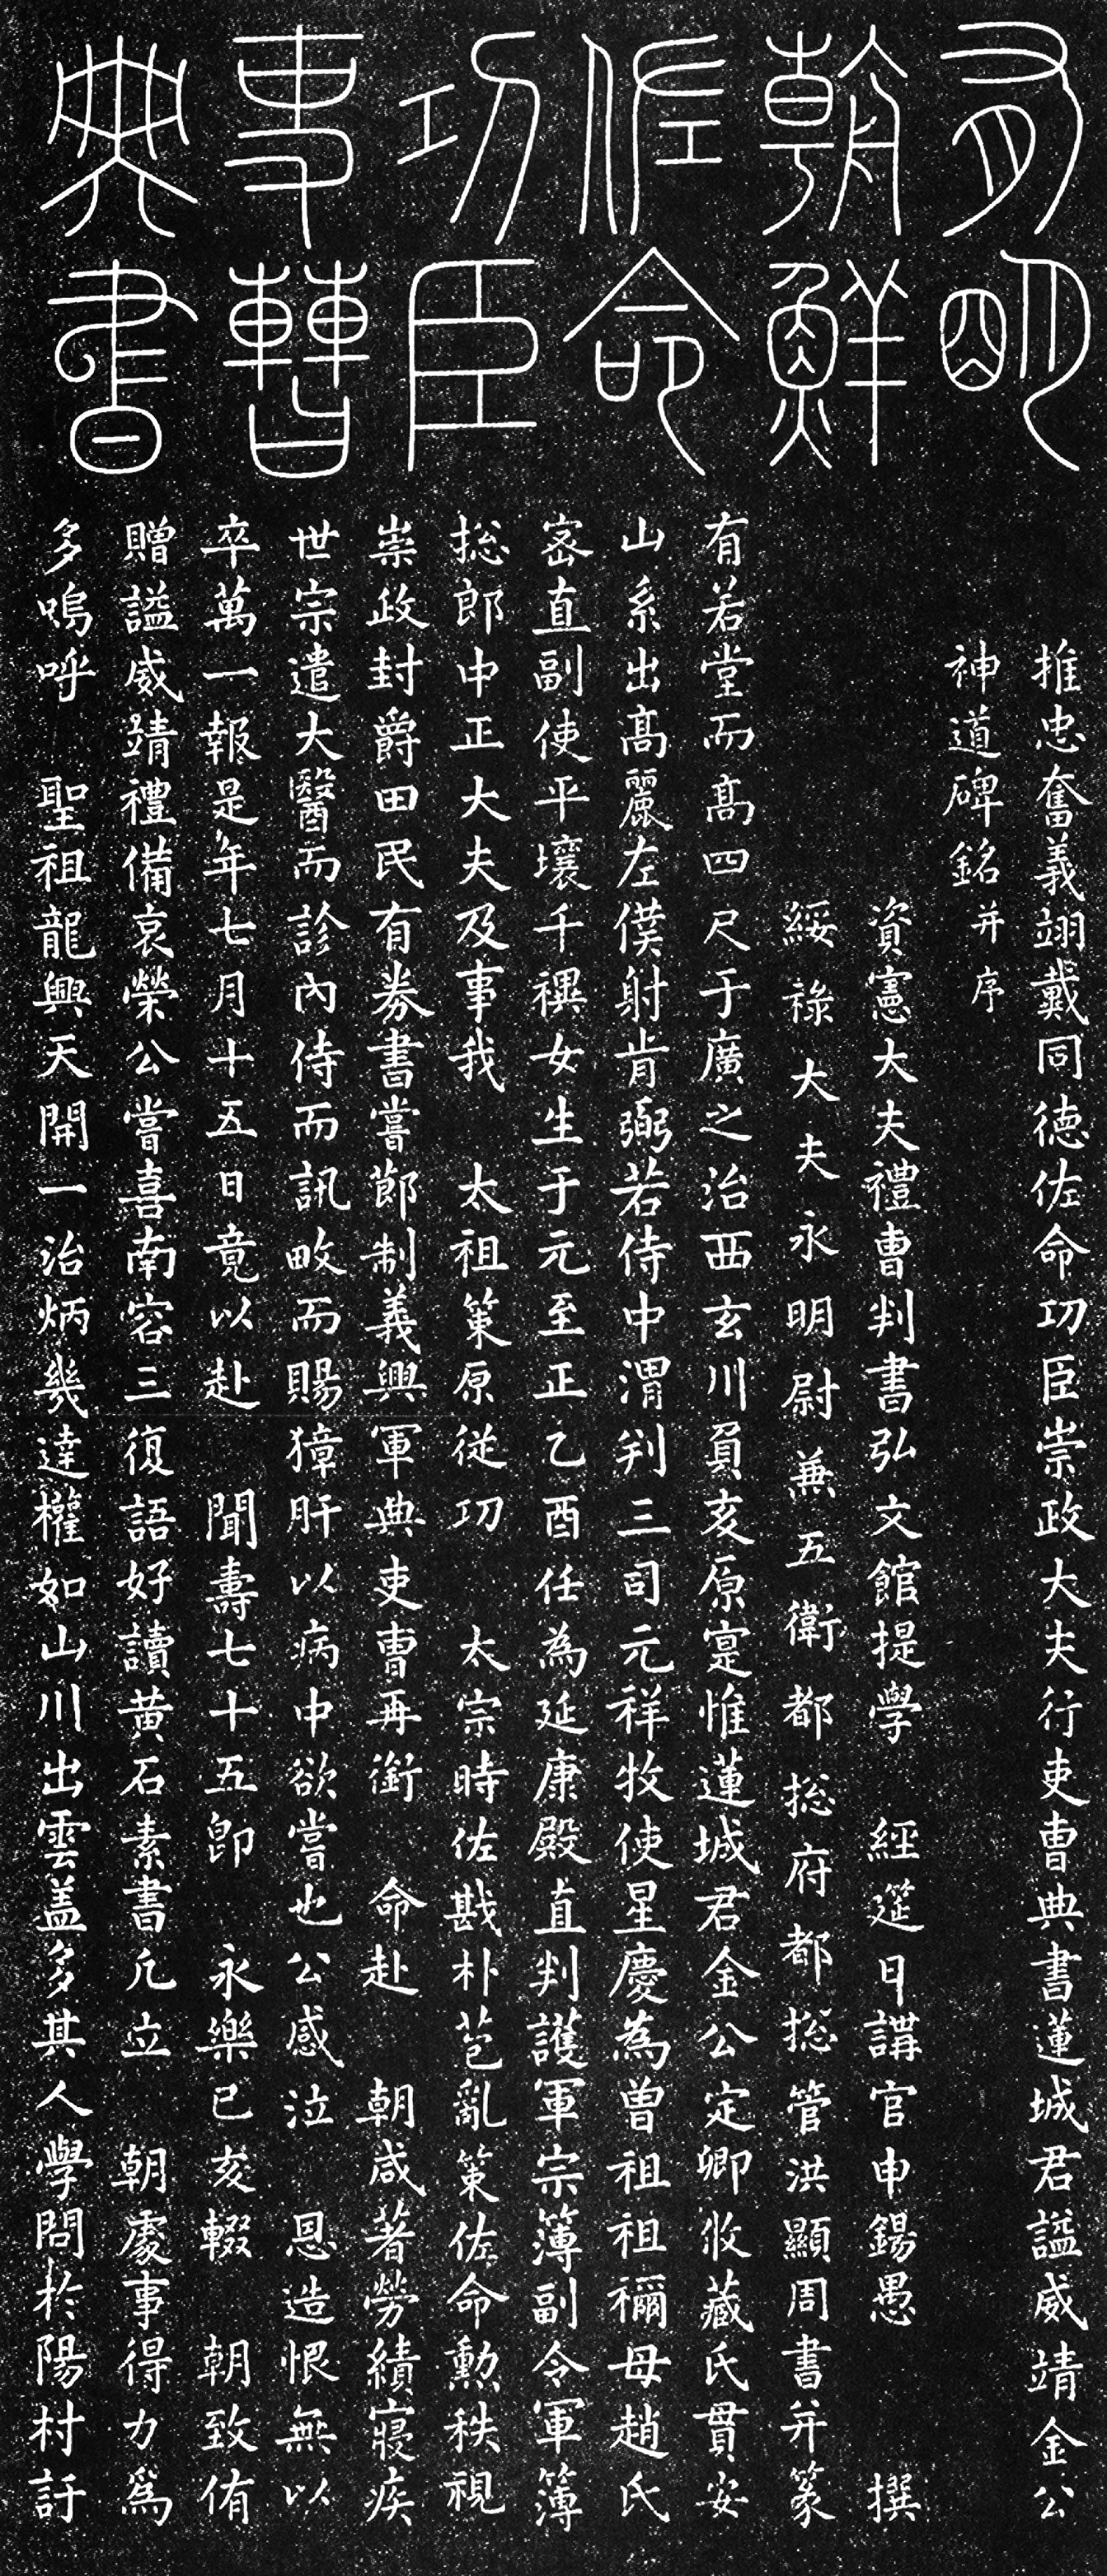 有明
朝鮮
佐命
功臣
事曹
典書
推忠奮義翊戴同德佐命功臣崇政大夫行吏曹典書蓮城君謚威靖金公
神道碑銘并序
資憲大夫禮曹判書弘文館提學　經筵日講官申錫愚　撰
綏祿大夫永明尉兼五衛都摠府都摠管洪顯周書并篆
有若堂而高四尺于廣之治西玄川負亥原寔惟蓮城君金公定卿攸藏氏貫安
山系出高麗左僕射肯弼若侍中渭判三司元祥牧使星慶為曾祖祖禰母趙氏
密直副使平壤千禩女生于元至正乙酉任為延康殿直判護軍宗簿副令軍簿
摠郎中正大夫及事我　太祖策原從功　太宗時佐戡朴苞亂策佐命勳秩視
崇政封爵田民有券書嘗節制義興軍典吏曹再銜　命赴　朝咸著勞績寢疾
世宗遣大醫而診內侍而訊畋而賜獐肝以病中欲嘗也公感泣　恩造恨無以
卒萬一報是年七月十五日竟以赴　聞壽七十五卽　永樂已亥輟　朝致侑
贈謚威靖禮備哀榮公嘗喜南容三復語好讀黃石素書凢立　朝處事得力爲
多嗚呼　聖祖龍興天開一治炳幾達權如山川出雲盖多其人學問於陽村託